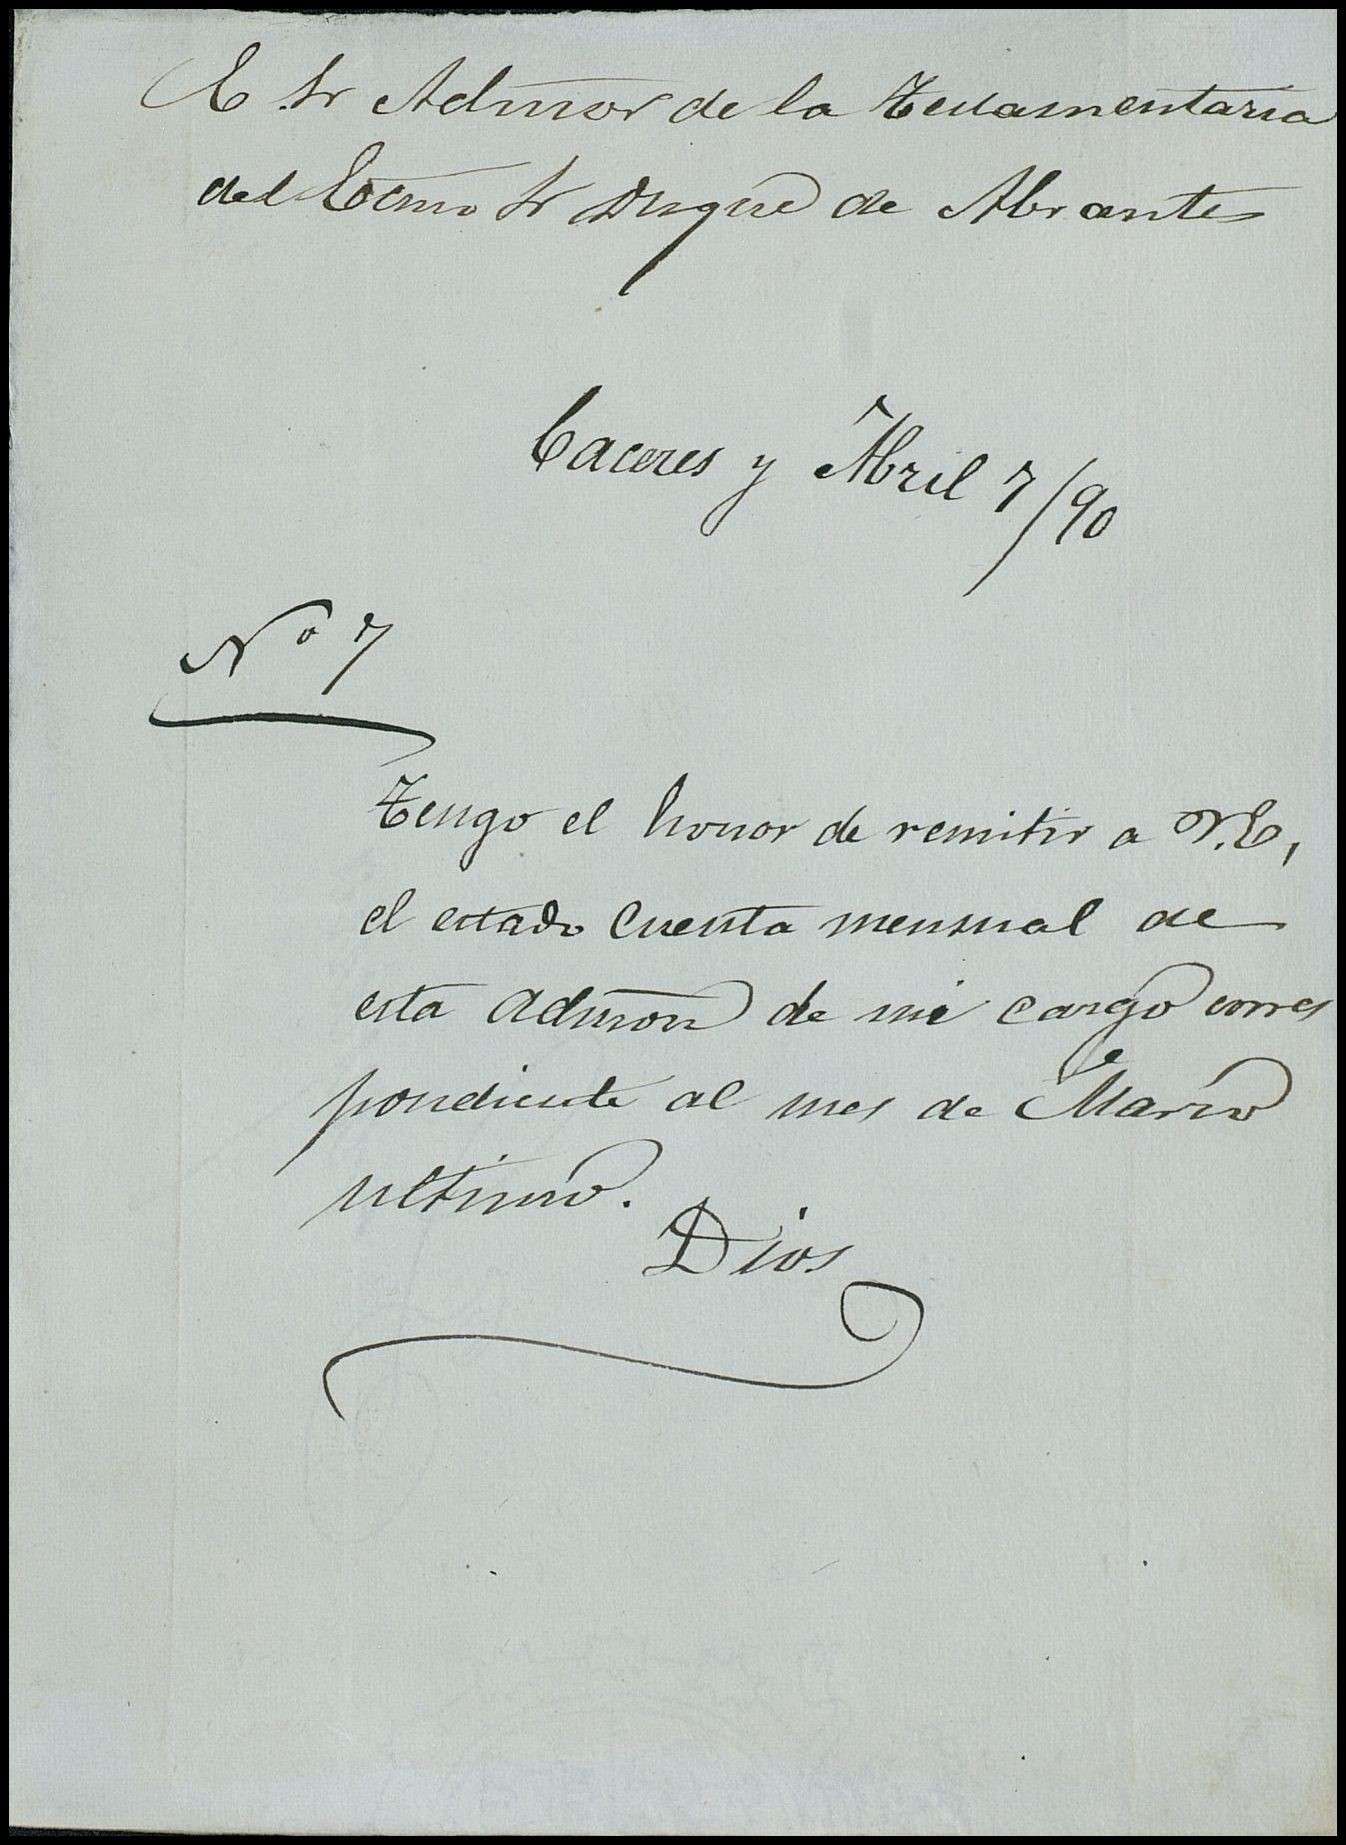 E Sr Admor de la Testamentaria
del Ecxmo Sr Duque de Abrantes
Caceres y Abril 7/90
Nº 7
Tengo el honor de remitir a V.E,
el estado cuenta mensual de
esta Admon de mi cargo corres
pondiente al mes de Marzo
ultimo.
Dios